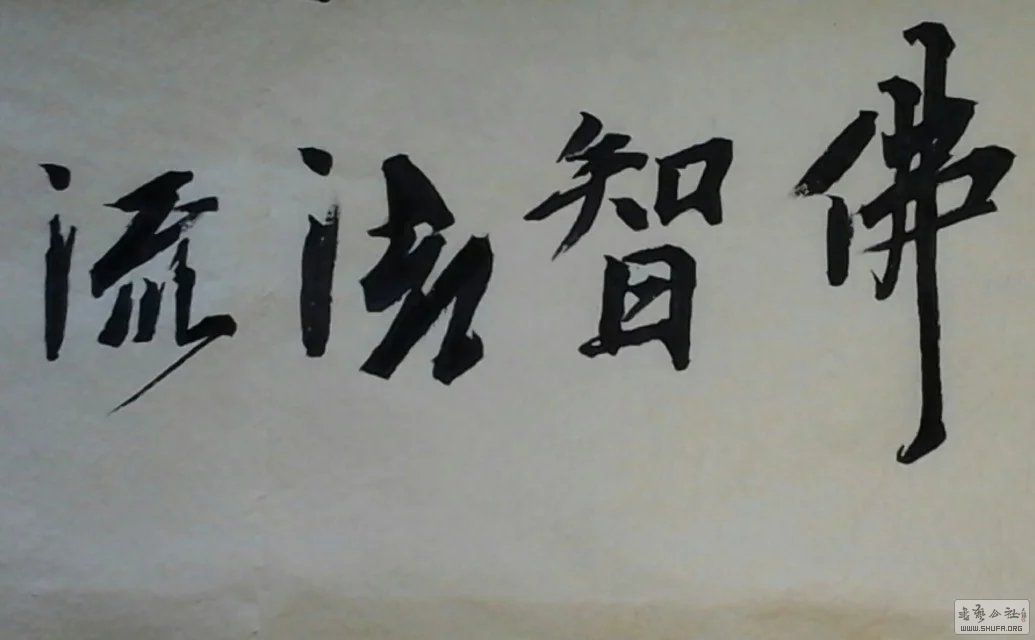 佛智法流
書藝公社
WWW.SHUFA.ORG